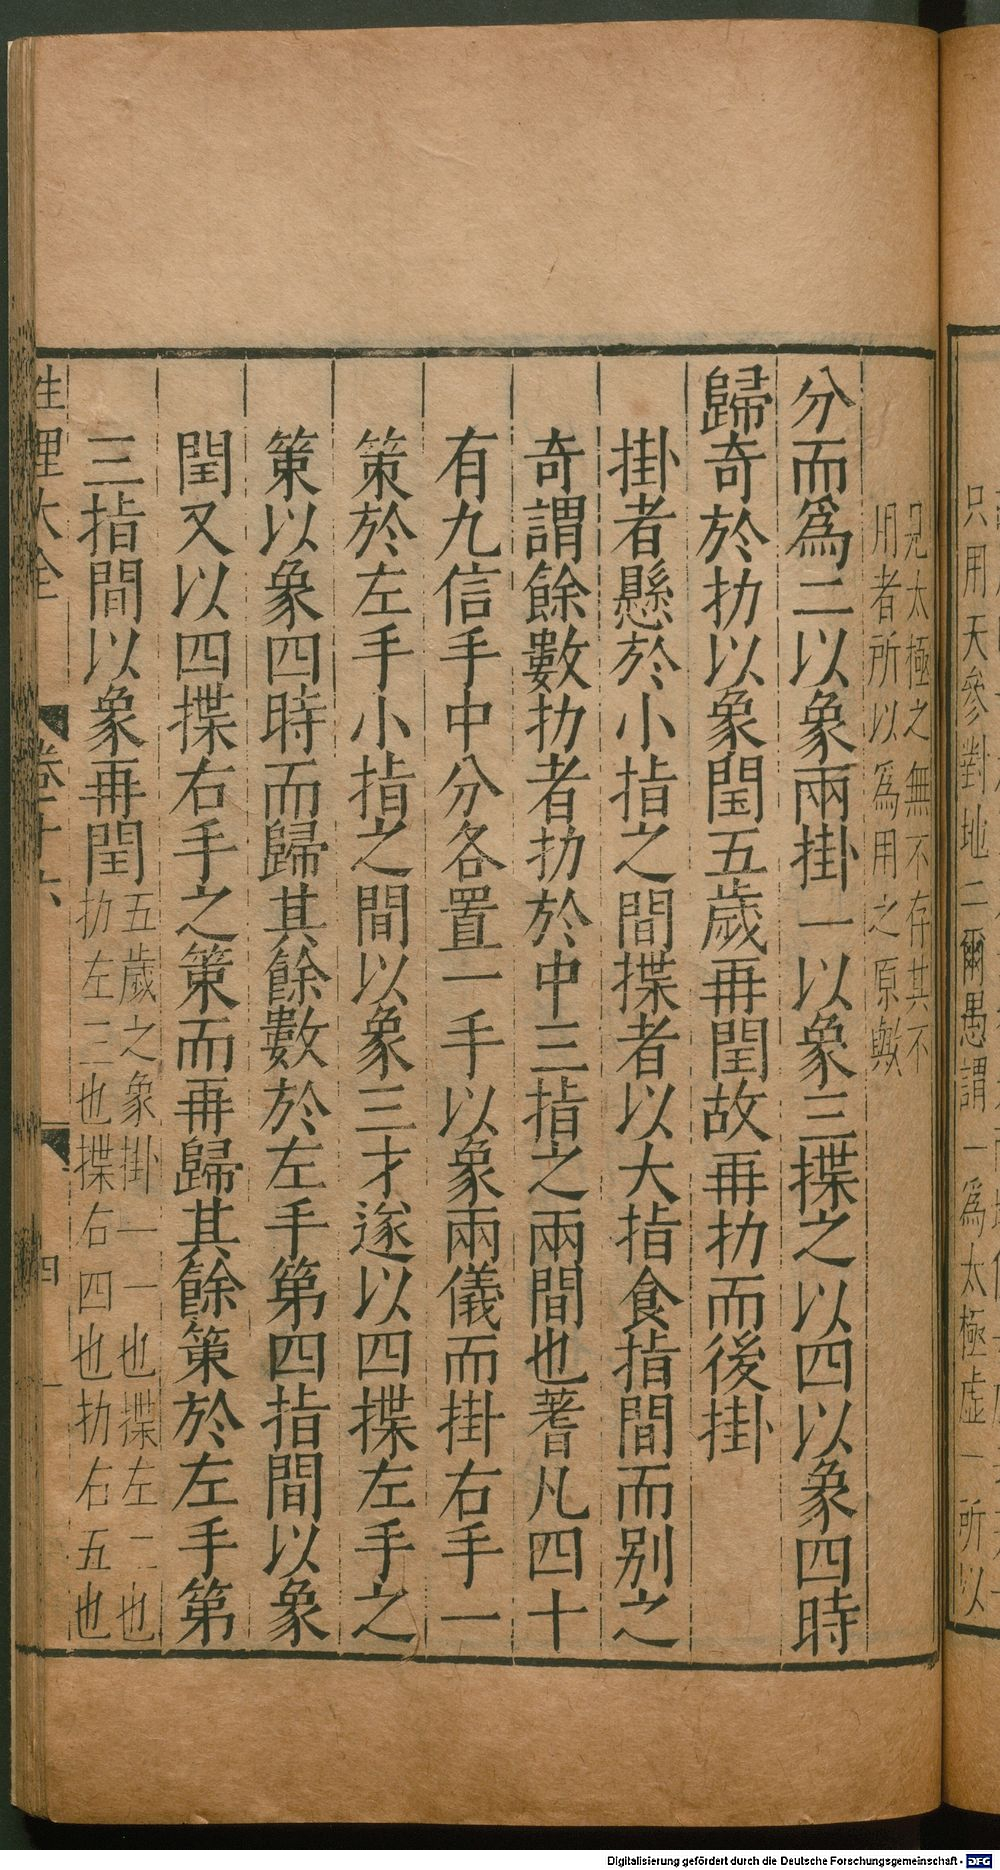 只用天參對地二爾愚謂一爲太極虛一所以
見太極之無不存其不
用者所以爲用之原歟
分而爲二以象兩掛一以象三揲之以四以象四時
歸奇於扐以象閏五歲再閏故再扐而後掛
掛者懸於小指之間揲者以大指食指間而別之
奇謂餘數扐者扐於中三指之兩間也蓍凡四十
有九信手中分各置一手以象兩儀而掛右手一
策於左手小指之間以象三才遂以四揲左手之
策以象四時而歸其餘數於左手第四指間以象
閏又以四揲右手之策而再歸其餘策於左手第
三指間以象再閏
五歲之象掛一一也揲左二也
扐左三也揲右四也扐右五也
性理大全 卷十六 四
Digitalisierung gefördert durch die Deutsche Forschungsgemeinschaft - DFG